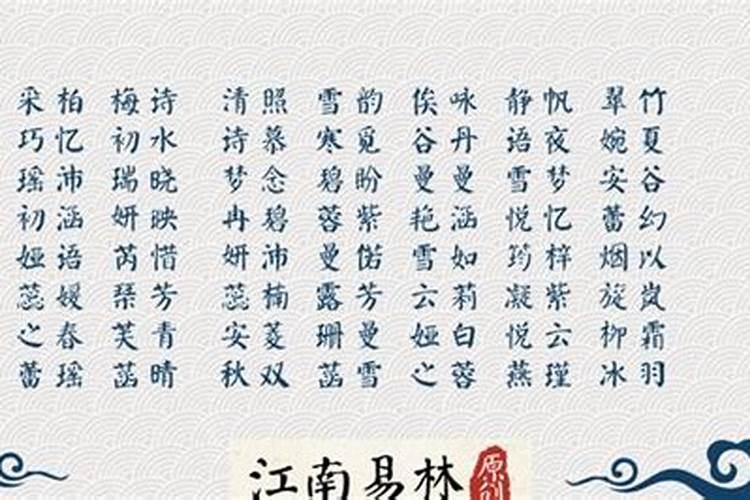 采柏 梅诗 清照 雪韵 俟咏 静帆 翠竹
巧忆 初水 诗慕 寒觅 谷丹 语夜 婉夏
瑶沛 瑞晓 梦念 碧盼 曼曼 雪梦 安谷
初涵 妍映 冉碧 蓉紫 艳涵 悦忆 蕾幻
娅语 芮惜 妍沛 曼偌 雪如 筠梓 烟以
蕊媛 琴芳 蕊楠 露芳 云莉 凝紫 旋岚
之春 芙青 安菱 珊曼 娅白 悦云 柳霜
蕾瑶 菡晴 秋双 菡雪 之蓉 燕瑾 冰羽
江南易林